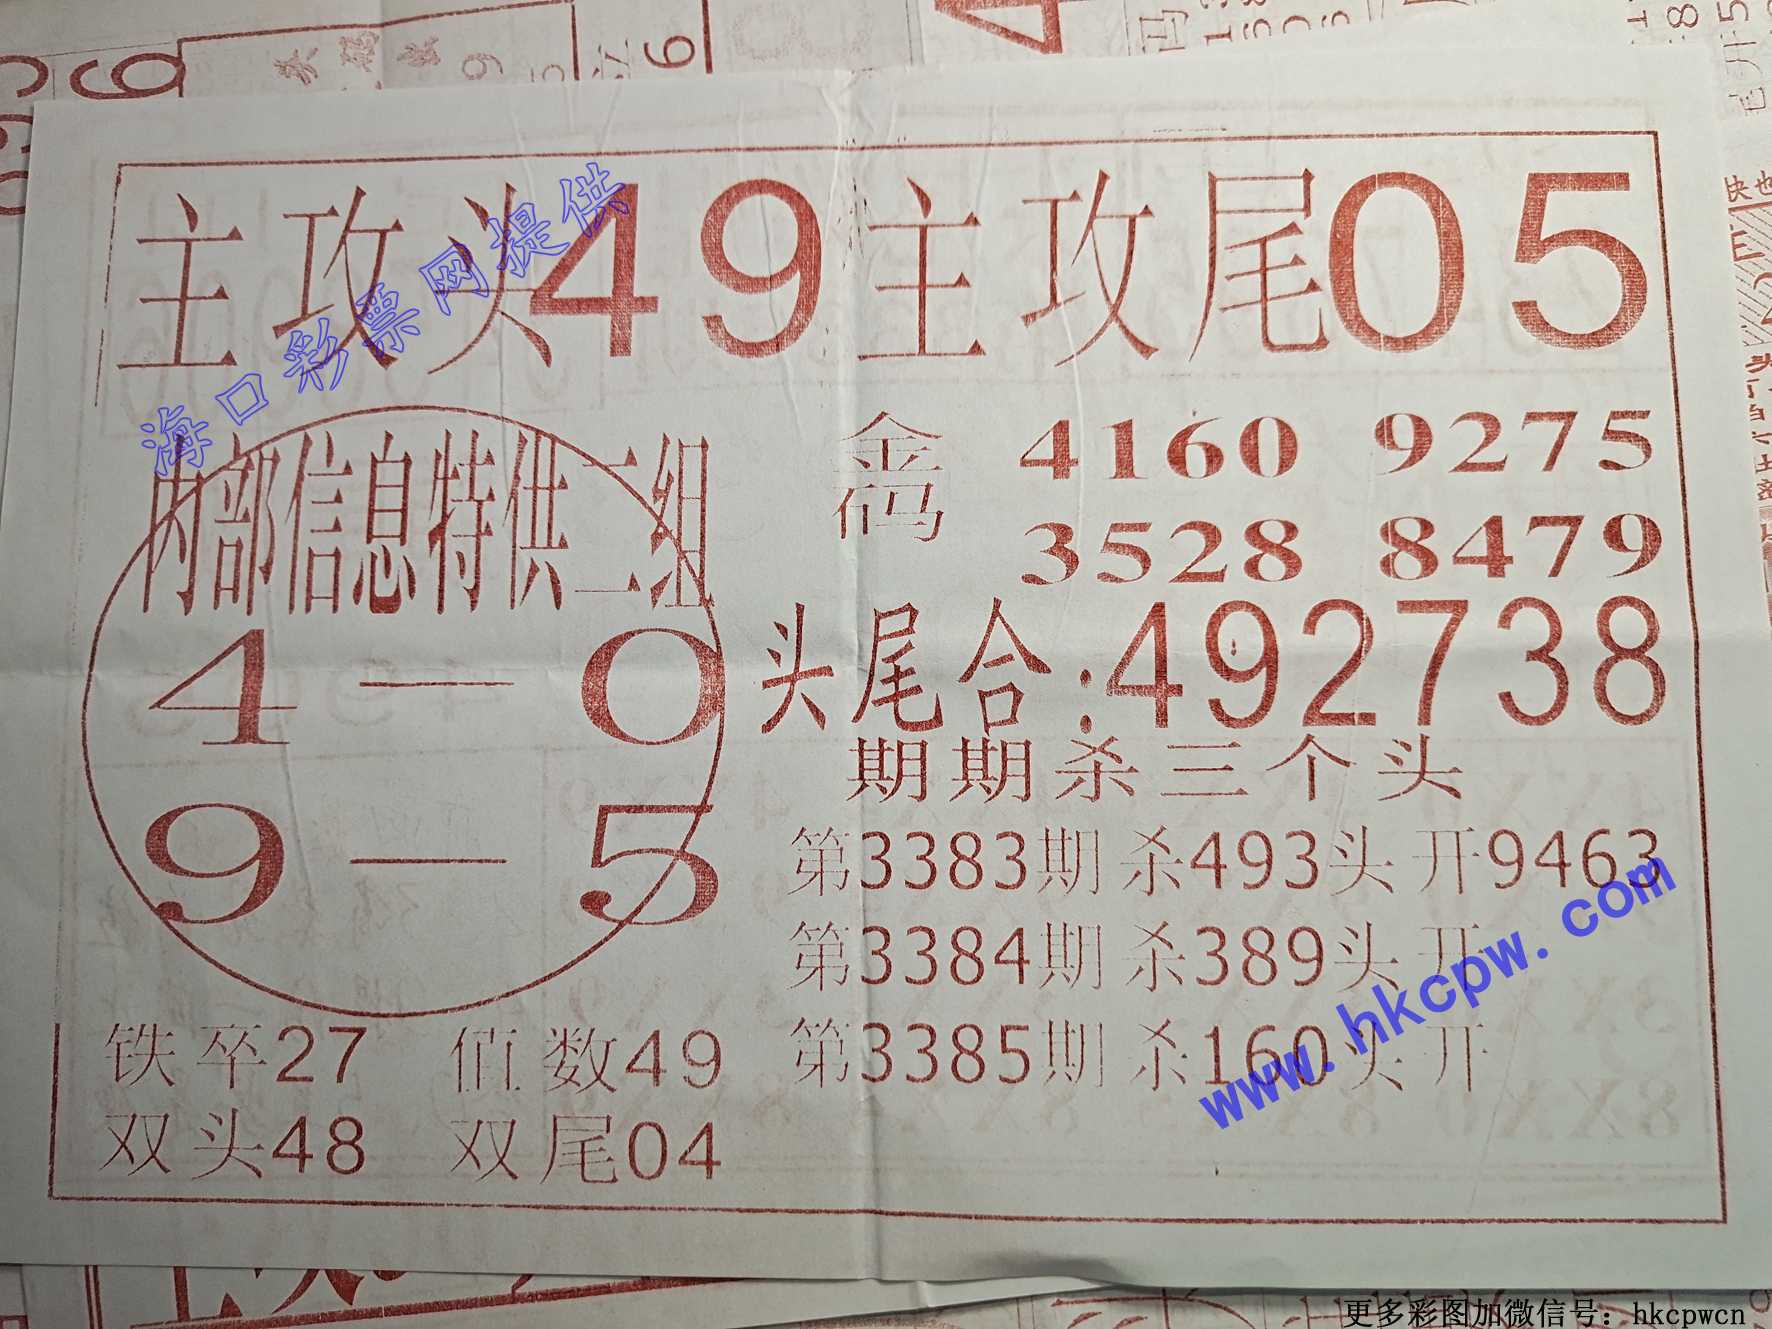 主攻头49主攻尾05
海口彩票网提供
内部信息特供二组
4—0
9—5
铁卒27 值数49
双头48 双尾04
金码 4160 9275
3528 8479
头尾合:492738
期期杀三个头
第3383期 杀493头 开9463
第3384期 杀389头 开
第3385期 杀160头 开
www.hkcpw.com
更多彩图加微信号：hkcpwcn